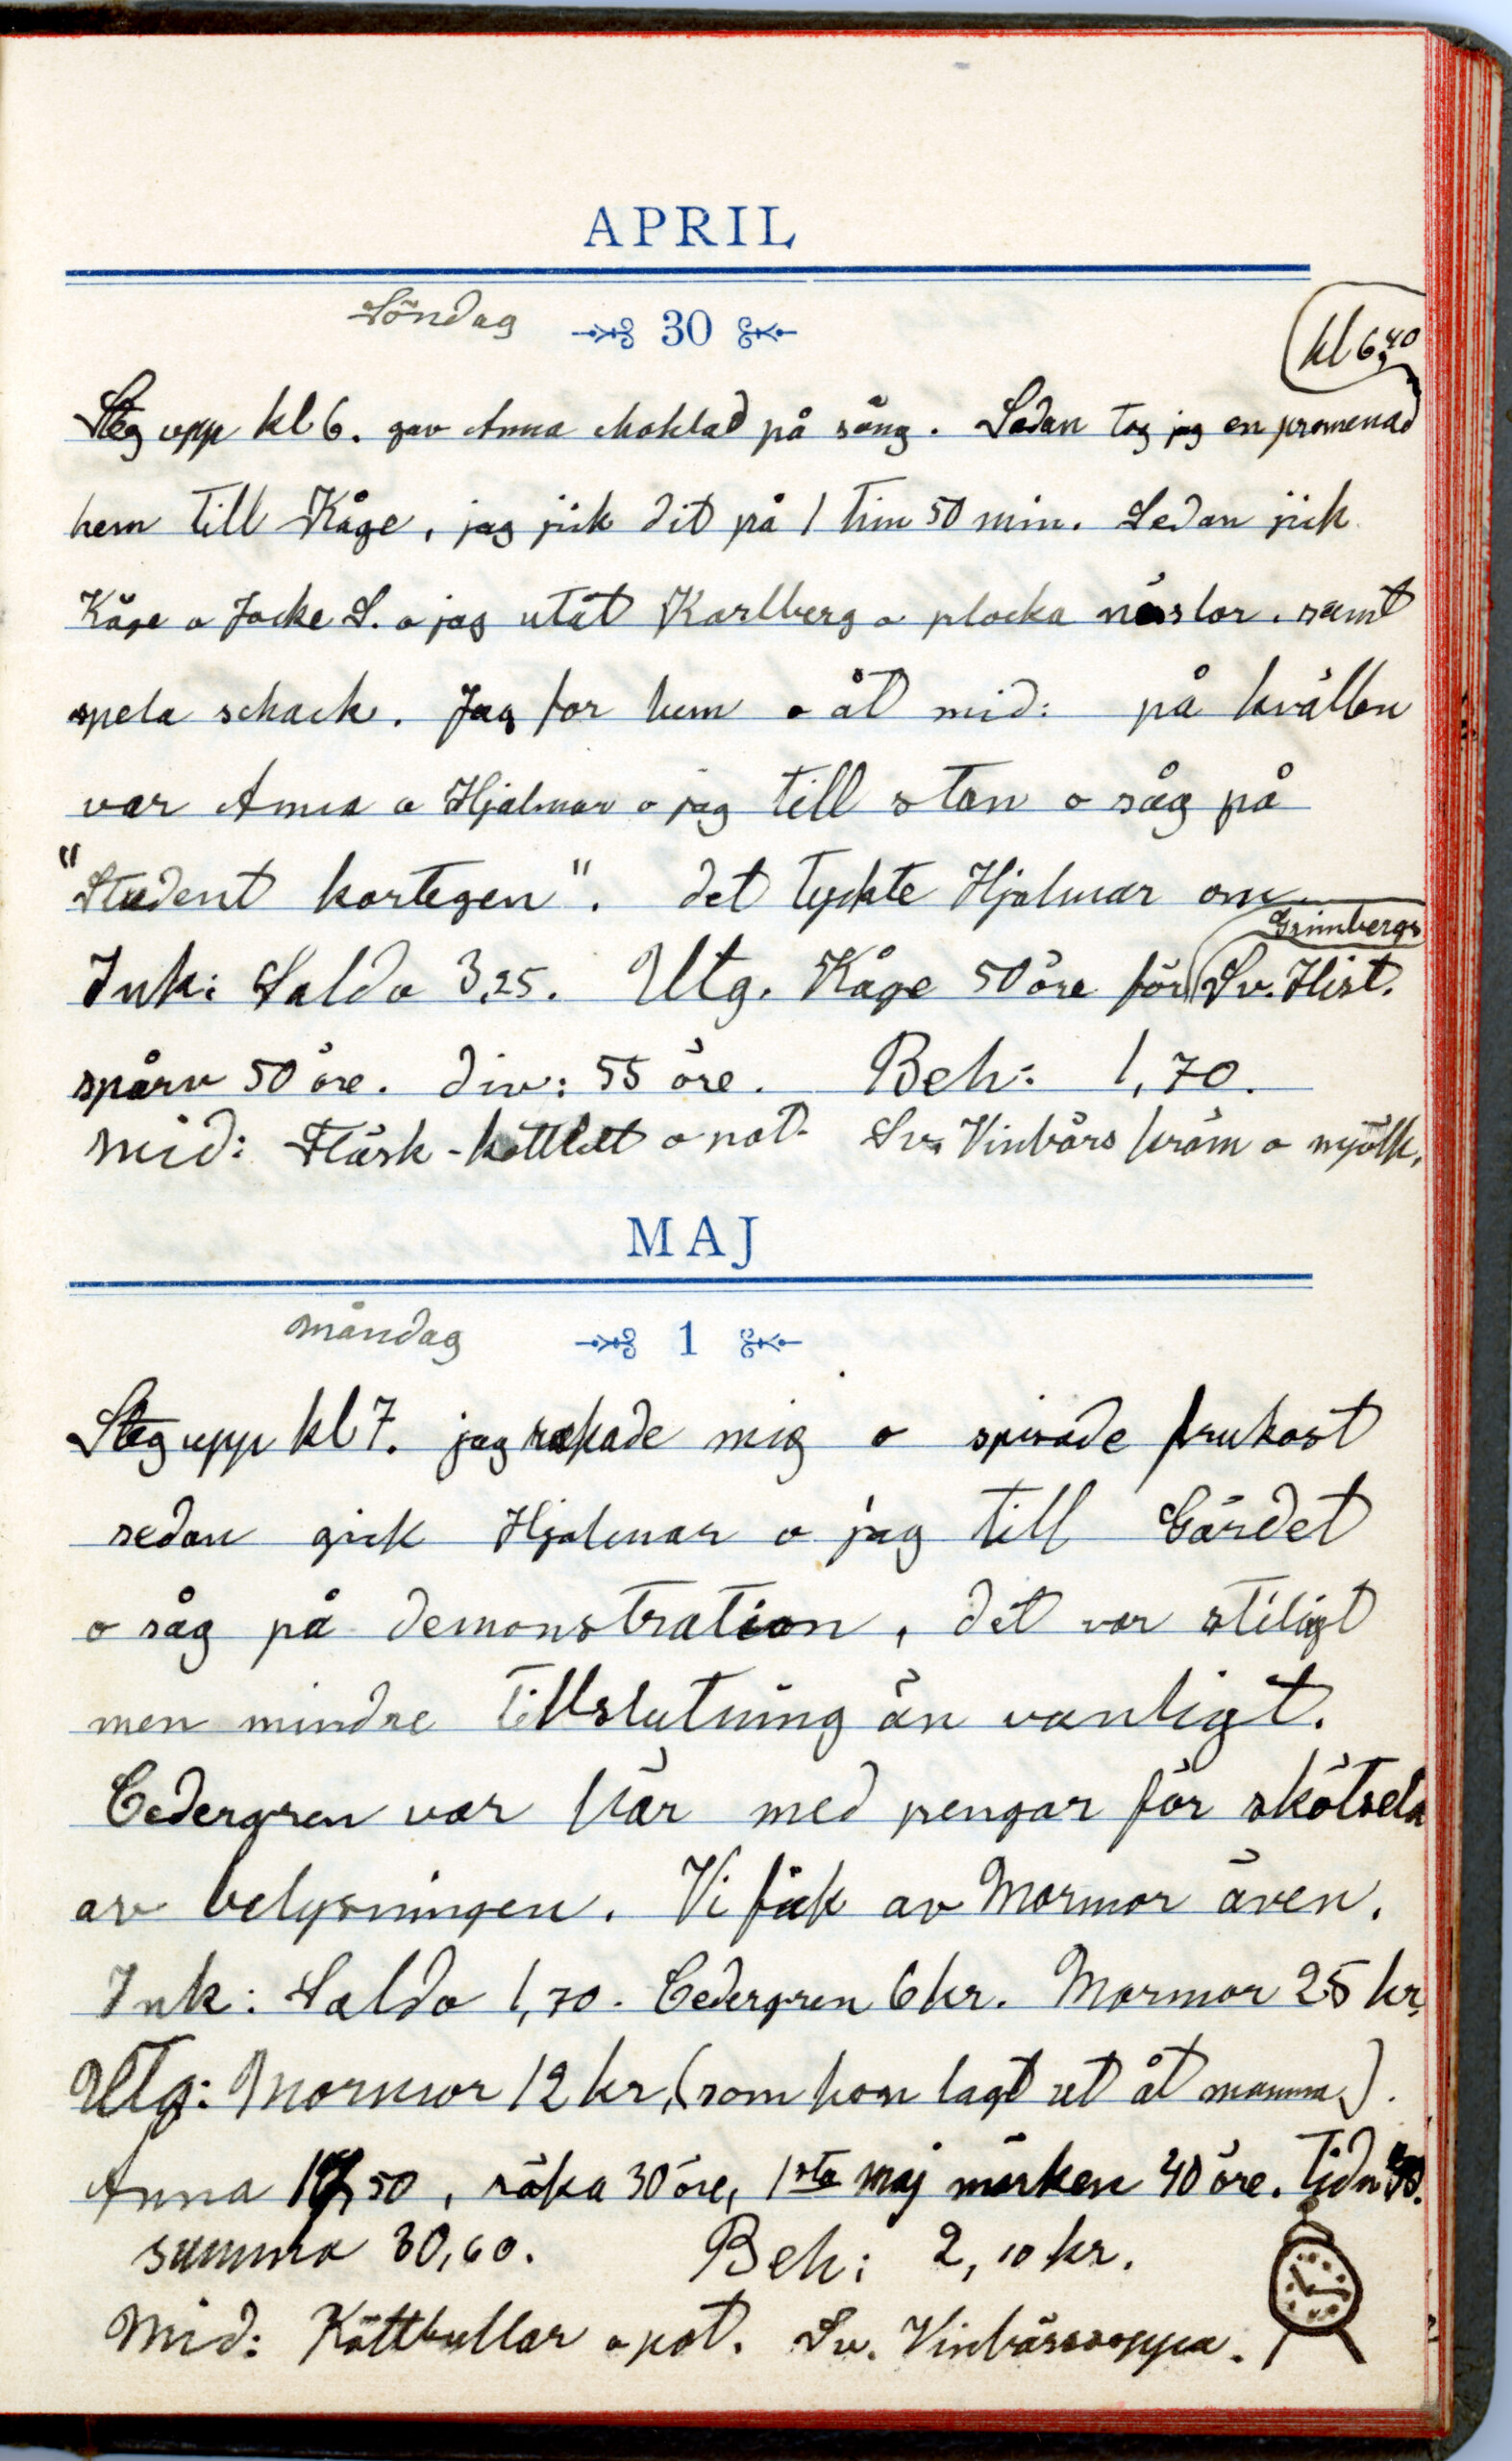 APRIL
Söndag 30
kl 6,40
Steg upp kl 6. gav Anna choklad på säng. Sedan tog jag en promenad
hem till Kåge, jag jick dit på 1 tim 50 min. Sedan jick
Kåge o Jocke S. o jag utåt Karlberg o plocka näslor. samt
spela schack. Jag for hem o åt mid: på kvällen
var Anna o Hjalmar o jag till stan o såg på
"Student kortegen". det tyckte Hjalmar om
Grimbergs
Ink: Saldo 3,25. Utg. Kåge 50 öre för Sv. Hist.
spårv 50 öre. div: 55 öre. Beh: 1,70.
Mid: Fläsk-kottlett o pot. Sv. Vinbärs kräm o mjölk.
MAJ
måndag 1
Steg upp kl 7. jag rakade mig o spisade frukost
sedan gick Hjalmar o jag till Gärdet
o såg på demonstration, det var stiligt
men mindre tillslutning än vanligt.
Cedergren var här med pengar för skötseln
av belysningen. Vi fick av Mormor även.
Ink: Saldo 1,70. Cedergren 6 kr. Mormor 25 kr,
Utg: Mormor 12 kr, (som hon lagt ut åt mamma).
Anna 17,50, röka 30 öre, 1sta maj märken 40 öre. Tidn 40.
summa 30,60. Beh: 2,10 kr.
Mid: Köttbullar o pot. Sv. Vinbärssoppa.